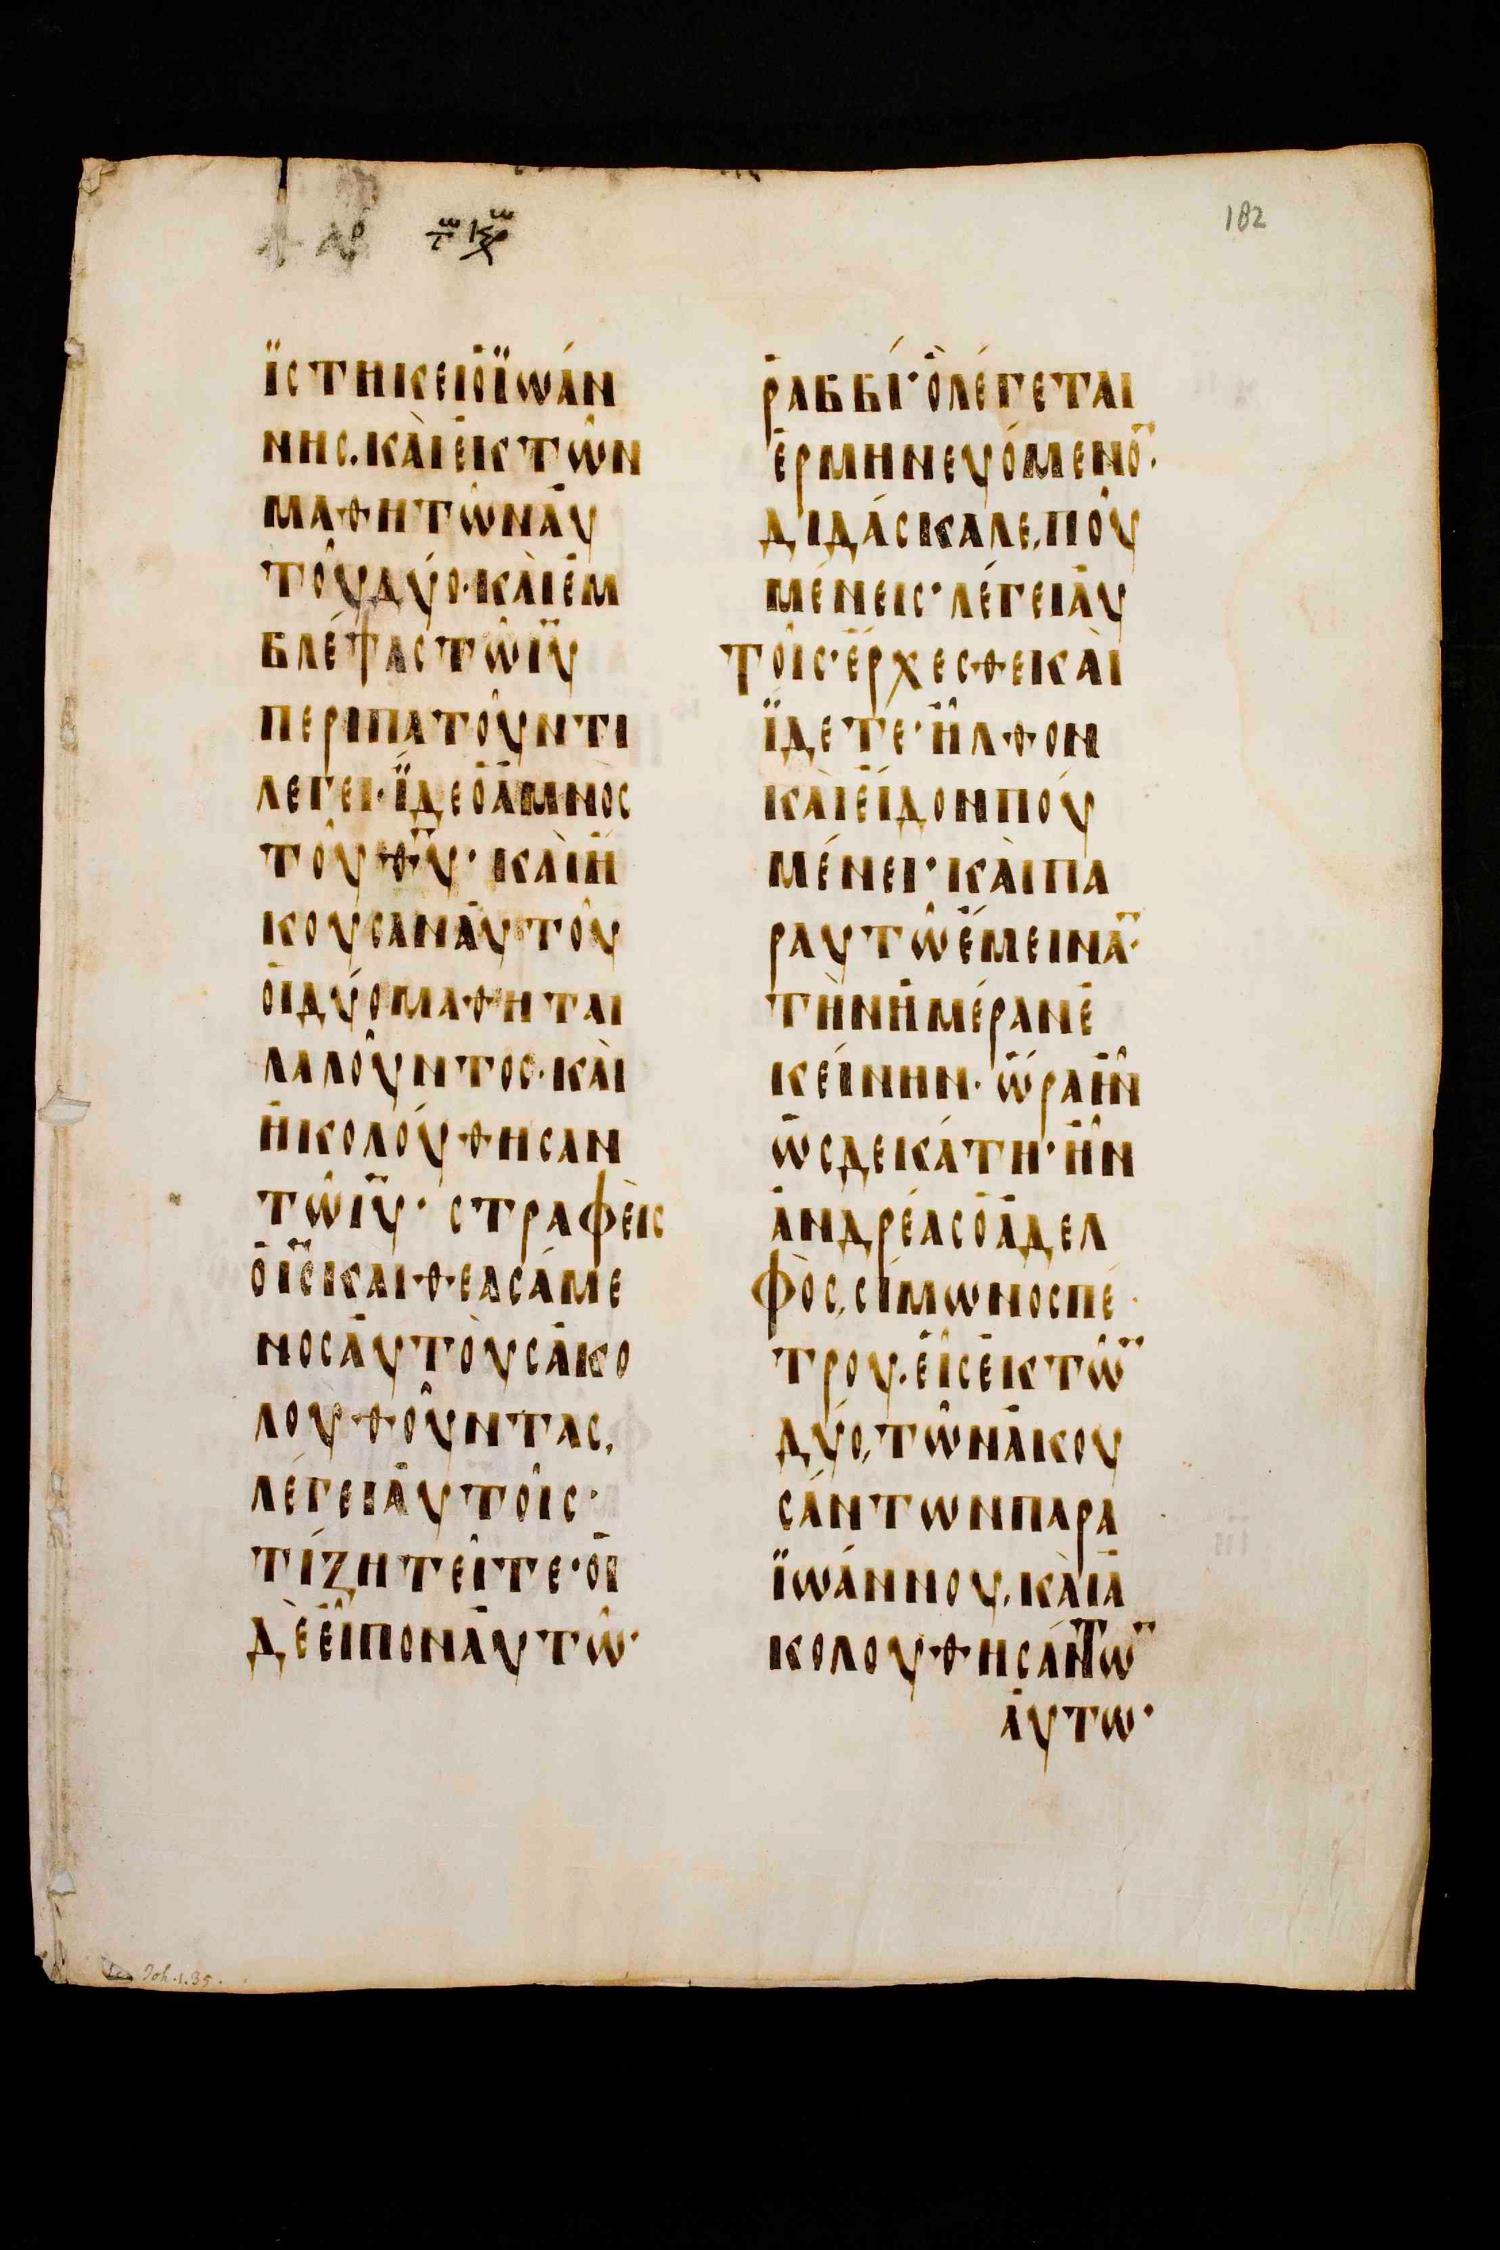 182
ἱστήκει ὁ ϊωάν
νης. καὶ ἐκ τῶν
μαθητῶν αὐ
τοῦ δύο· καὶ ἐμ
βλέψας τῶ ιυ
περιπατοῦντι
λεγει· ἴδε ὁ ἀμνὸς
τοῦ θυ· καὶ ἤ
κουσαν αὐτοῦ
οἱ δύο μαθηται
λαλοῦντος· καὶ
ἠκολούθησαν
τῶ ιυ· στραφεὶς
ὁ ις και θεασάμε
νος αὐτοὺς ἀκο
λουθοῦντας,
λέγει αὐτοῖς·
τί ζητεῖτε· οἱ
δὲ εἶπον αὐτῶ·
ῥαββί· ὃ λέγεται
ἑρμηνευόμενο̅·
διδάσκαλε, ποῦ
μένεις· λέγει αὐ
τοῖς· ἔρχεσθε καὶ
ἴδετε· ἦλθον
καὶ εἶδον ποῦ
μένει· καὶ πα
ρ αυτῶ ἔμεινα̅·
τὴν ἡμέραν ἐ
κείνην· ὥρα ἦν
ὡς δεκάτη· ἦν
ἀνδρέας ὁ ἀδελ
φὸς, σίμωνος πέ
τρου. εἷς ἐκ τῶ̅
δύο, τῶν ἀκου
σάντων παρα
ϊωάννου, καὶ ἀ
κολουθησάντω̅
αὐτω·
Joh. 1. 35.